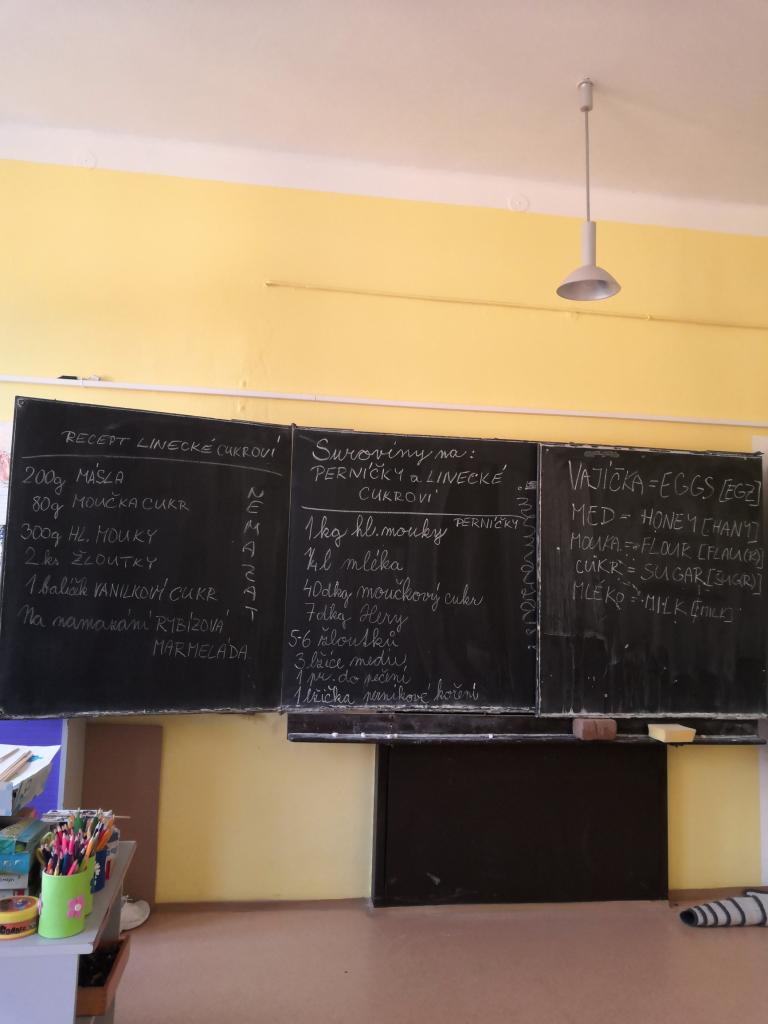 RECEPT LINECKÉ CUKROVÍ
200g MÁSLA
80g MOUČKA CUKR
300g HL. MOUKY
2 ks ŽLOUTKY
1 balíček VANILKOVÍ CUKR
Na namazání RYBÍZOVÁ
MARMELÁDA
NEMAZAT
Suroviny na:
PERNÍČKY a LINECKÉ
CUKROVÍ
PERNÍČKY
1 kg hl. mouky
1/4 l mléka
40 dkg moučkový cukr
7 dkg Hery
5-6 žloutků
3 lžíce medu
1 pr. do pečení
1 lžička perníkové koření
VAJÍČKA = EGGS [EGZ]
MED = HONEY [HANY]
MOUKA = FLOUR [FLAU(R)]
CUKR = SUGAR [ŠUGR]
MLÉKO = MILK [MILK]